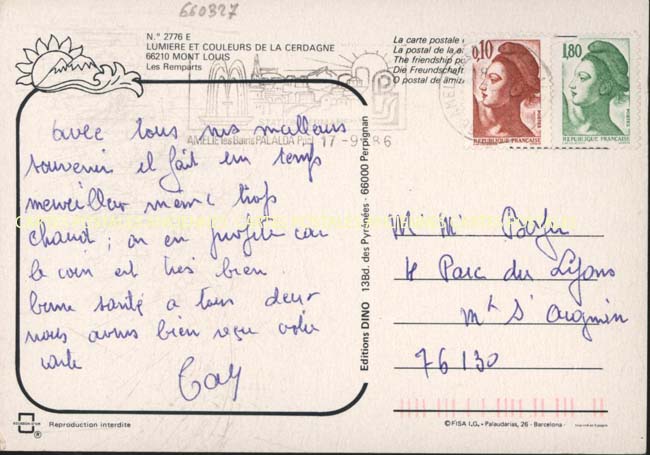 660327
N.° 2776 E
LUMIERE ET COULEURS DE LA CERDAGNE
66210 MONT LOUIS
Les Remparts
La carte postale
La postal de la
The friendship po
Die Freundschaft
O postal de amiza
0,10
1,80
POSTES
REPUBLIQUE FRANÇAISE
REPUBLIQUE FRANÇAISE
AMELIE les Bains PALALDA
17-9 86
avec tous nos meilleurs
souvenir il fait un temps
merveilleux même trop
chaud ; on en profite car
le coin est très bien
bonne santé a tous deux
nous avons bien reçu votre
carte
Editions DINO 13Bd. des Pyrénées - 66000 Perpignan
M Me
4 Parc du Lyons
Mt St Aignan
76130
Reproduction interdite
©FISA I.G. - Palaudarias, 26 - Barcelona